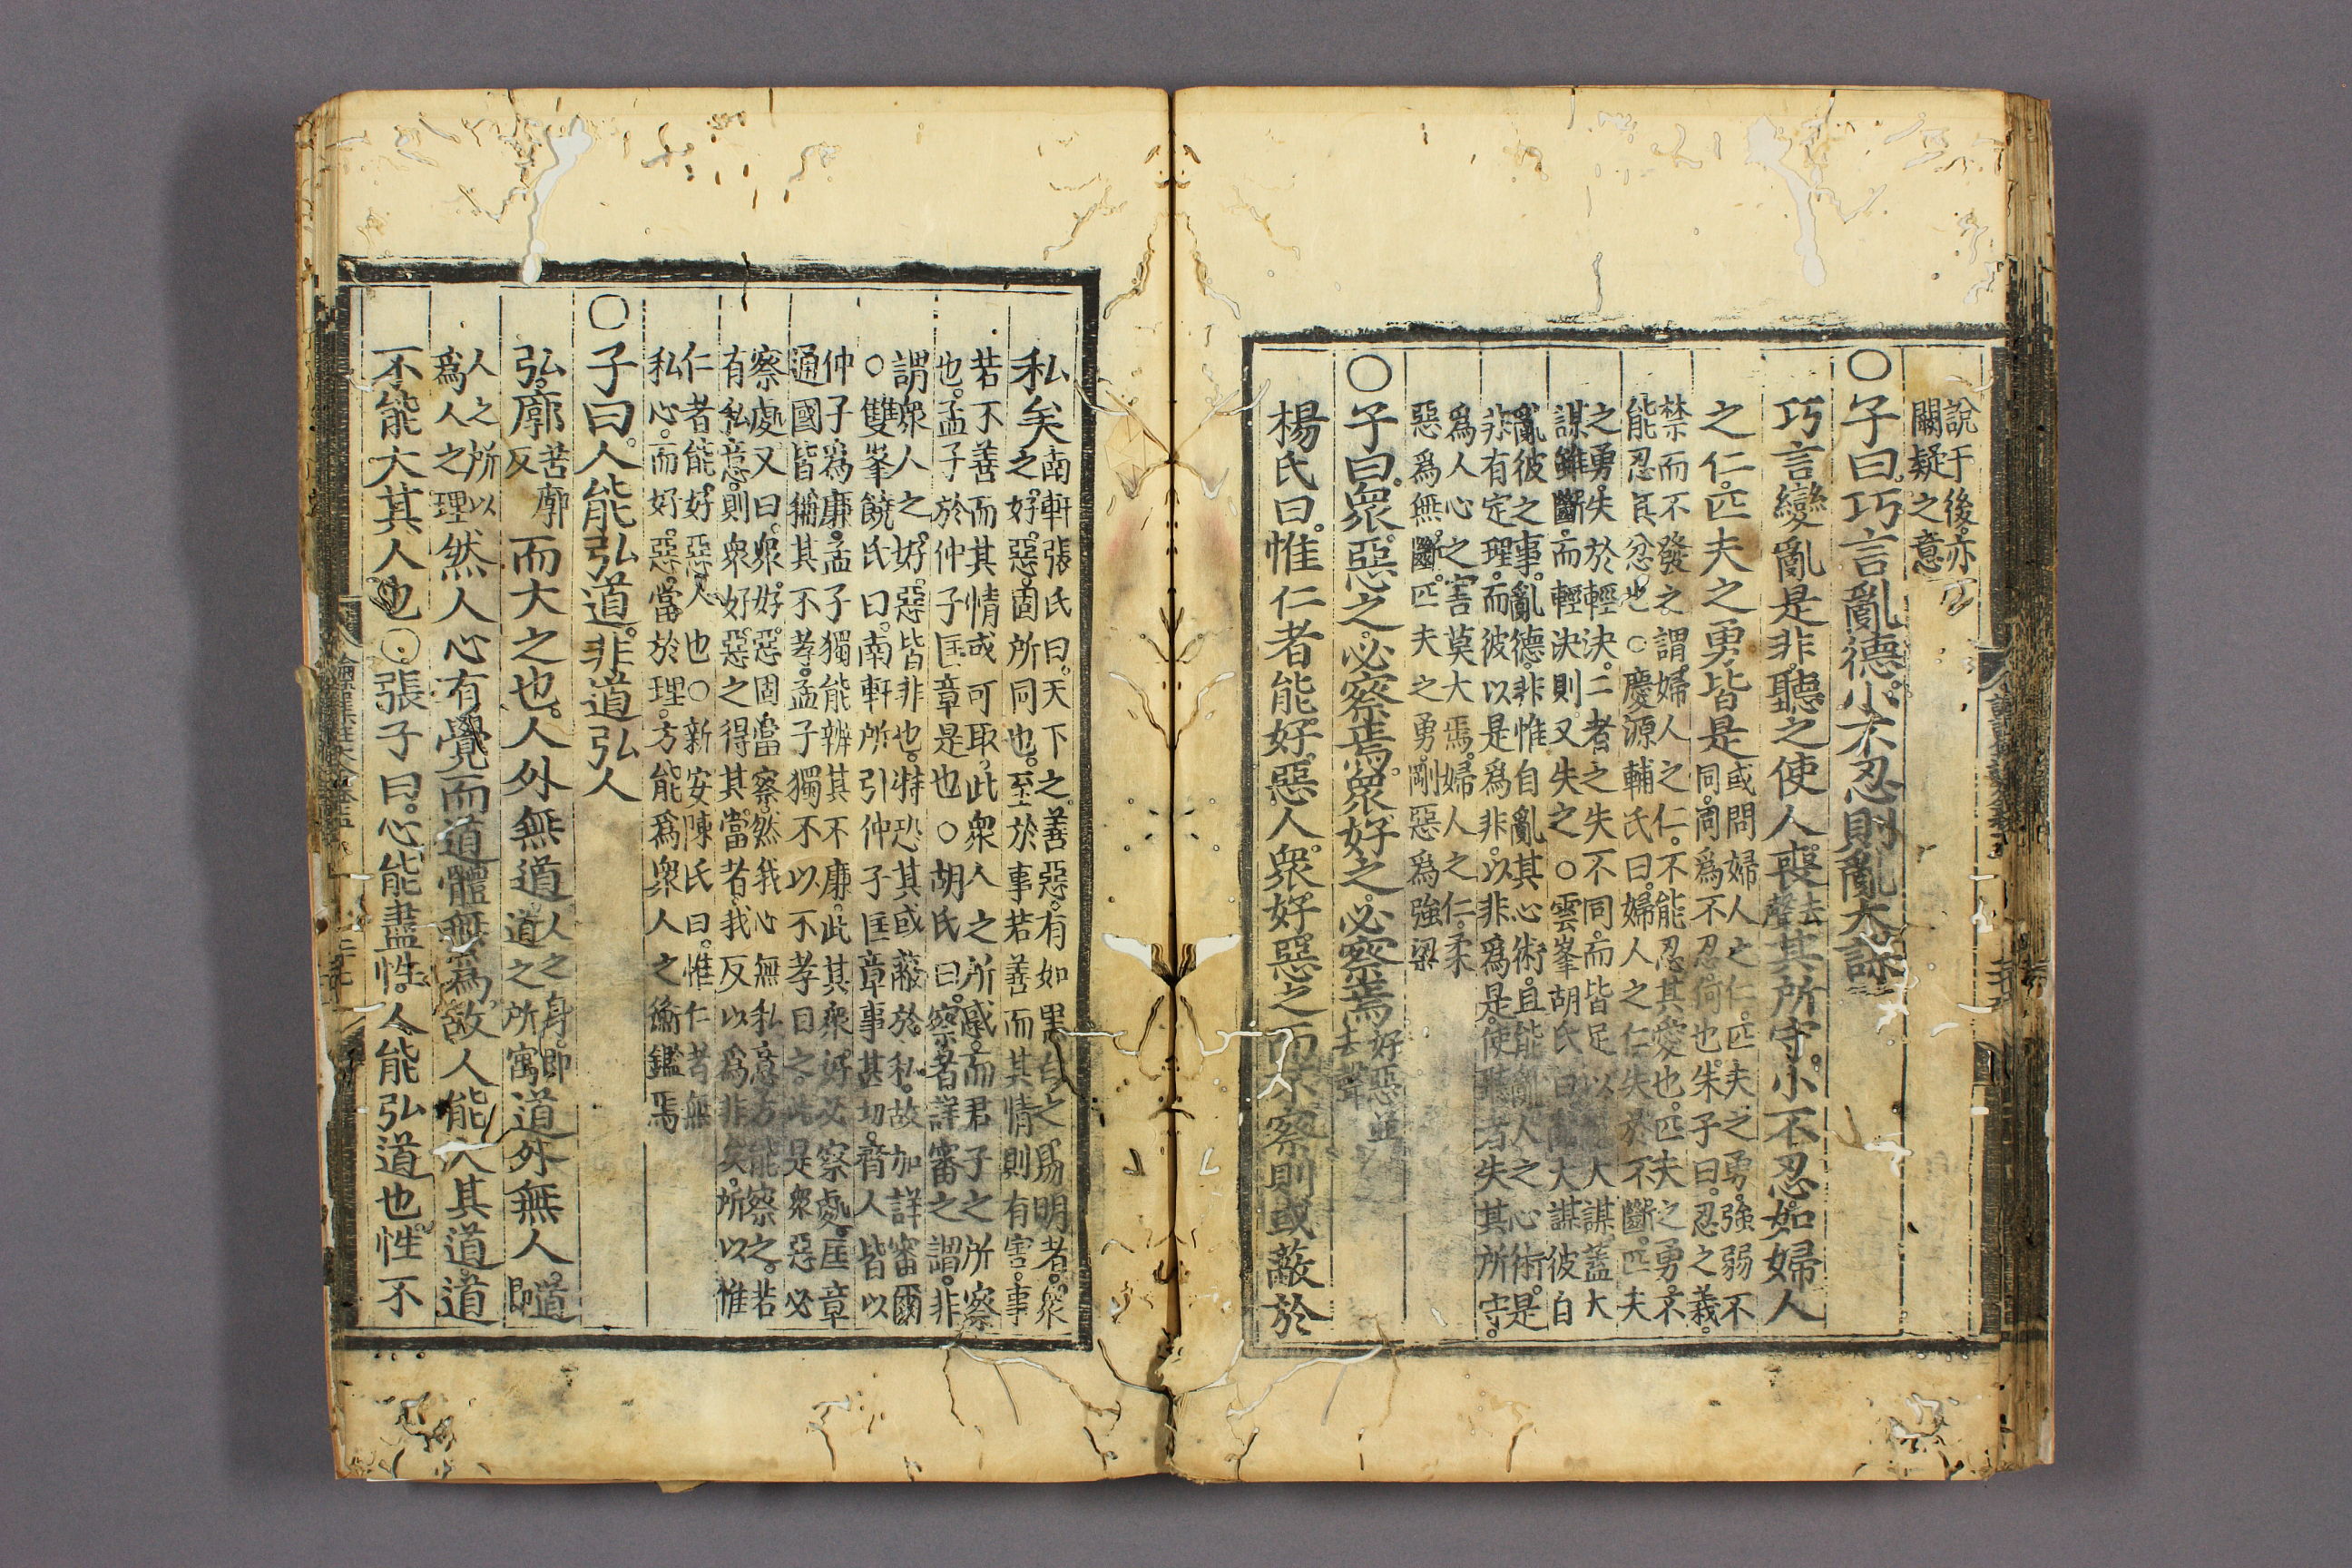 說于後亦
闕疑之意
○子曰巧言亂德小不忍則亂大謀
巧言變亂是非聽之使人喪去聲其所守小不忍如婦人
之仁匹夫之勇皆是或問婦人之仁匹夫之勇強弱不
同同爲不忍何也朱子曰忍之義
禁而不發之謂婦人之仁不能忍其愛也匹夫之勇不
能忍其忿也○慶源輔氏曰婦人之仁失於不斷匹夫
之勇失於輕決二者之失不同而皆足以 大謀蓋大
謀雖斷而輕決則又失之○雲峯胡氏曰 大謀彼自
亂彼之事亂德非惟自亂其心術且能亂人之心術是
非有定理而彼以是爲非以非爲是使聽者失其所守
爲人心之害莫大焉婦人之仁柔
惡爲無斷匹夫之勇剛惡爲強梁
○子曰衆惡之必察焉衆好之必察焉好惡並
去聲
楊氏曰惟仁者能好惡人衆好惡之而不察則或蔽於
私矣南軒張氏曰天下之善惡有如黑白之易明者衆
之好惡固所同也至於事若善而其情則有害事
若不善而其情或可取此衆人之所惑而君子之所察
也孟子於仲子匡章是也○胡氏曰察者詳審之謂非
謂衆人之好惡皆非也特恐其或蔽於私故加詳審爾
○雙峯饒氏曰南軒所引仲子匡章事甚切齊人皆以
仲子爲廉孟子獨能辨其不廉此其衆好必察處匡章
通國皆稱其不孝孟子獨不以不孝目之此是衆惡必
察處又曰衆好惡固當察然我心無私意方能察之若
有私意則衆好惡之得其當者我反以爲非矣所以惟
仁者能好惡人也○新安陳氏曰惟仁者無
私心而好惡當於理方能爲衆人之衡鑑焉
○子曰人能弘道非道弘人
弘廓苦廓
反而大之也人外無道人之身即
道之所寓道外無人道
即
人之所以
爲人之理然人心有覺而道體無爲故人能大其道道
不能大其人也○張子曰心能盡性人能弘道也性不